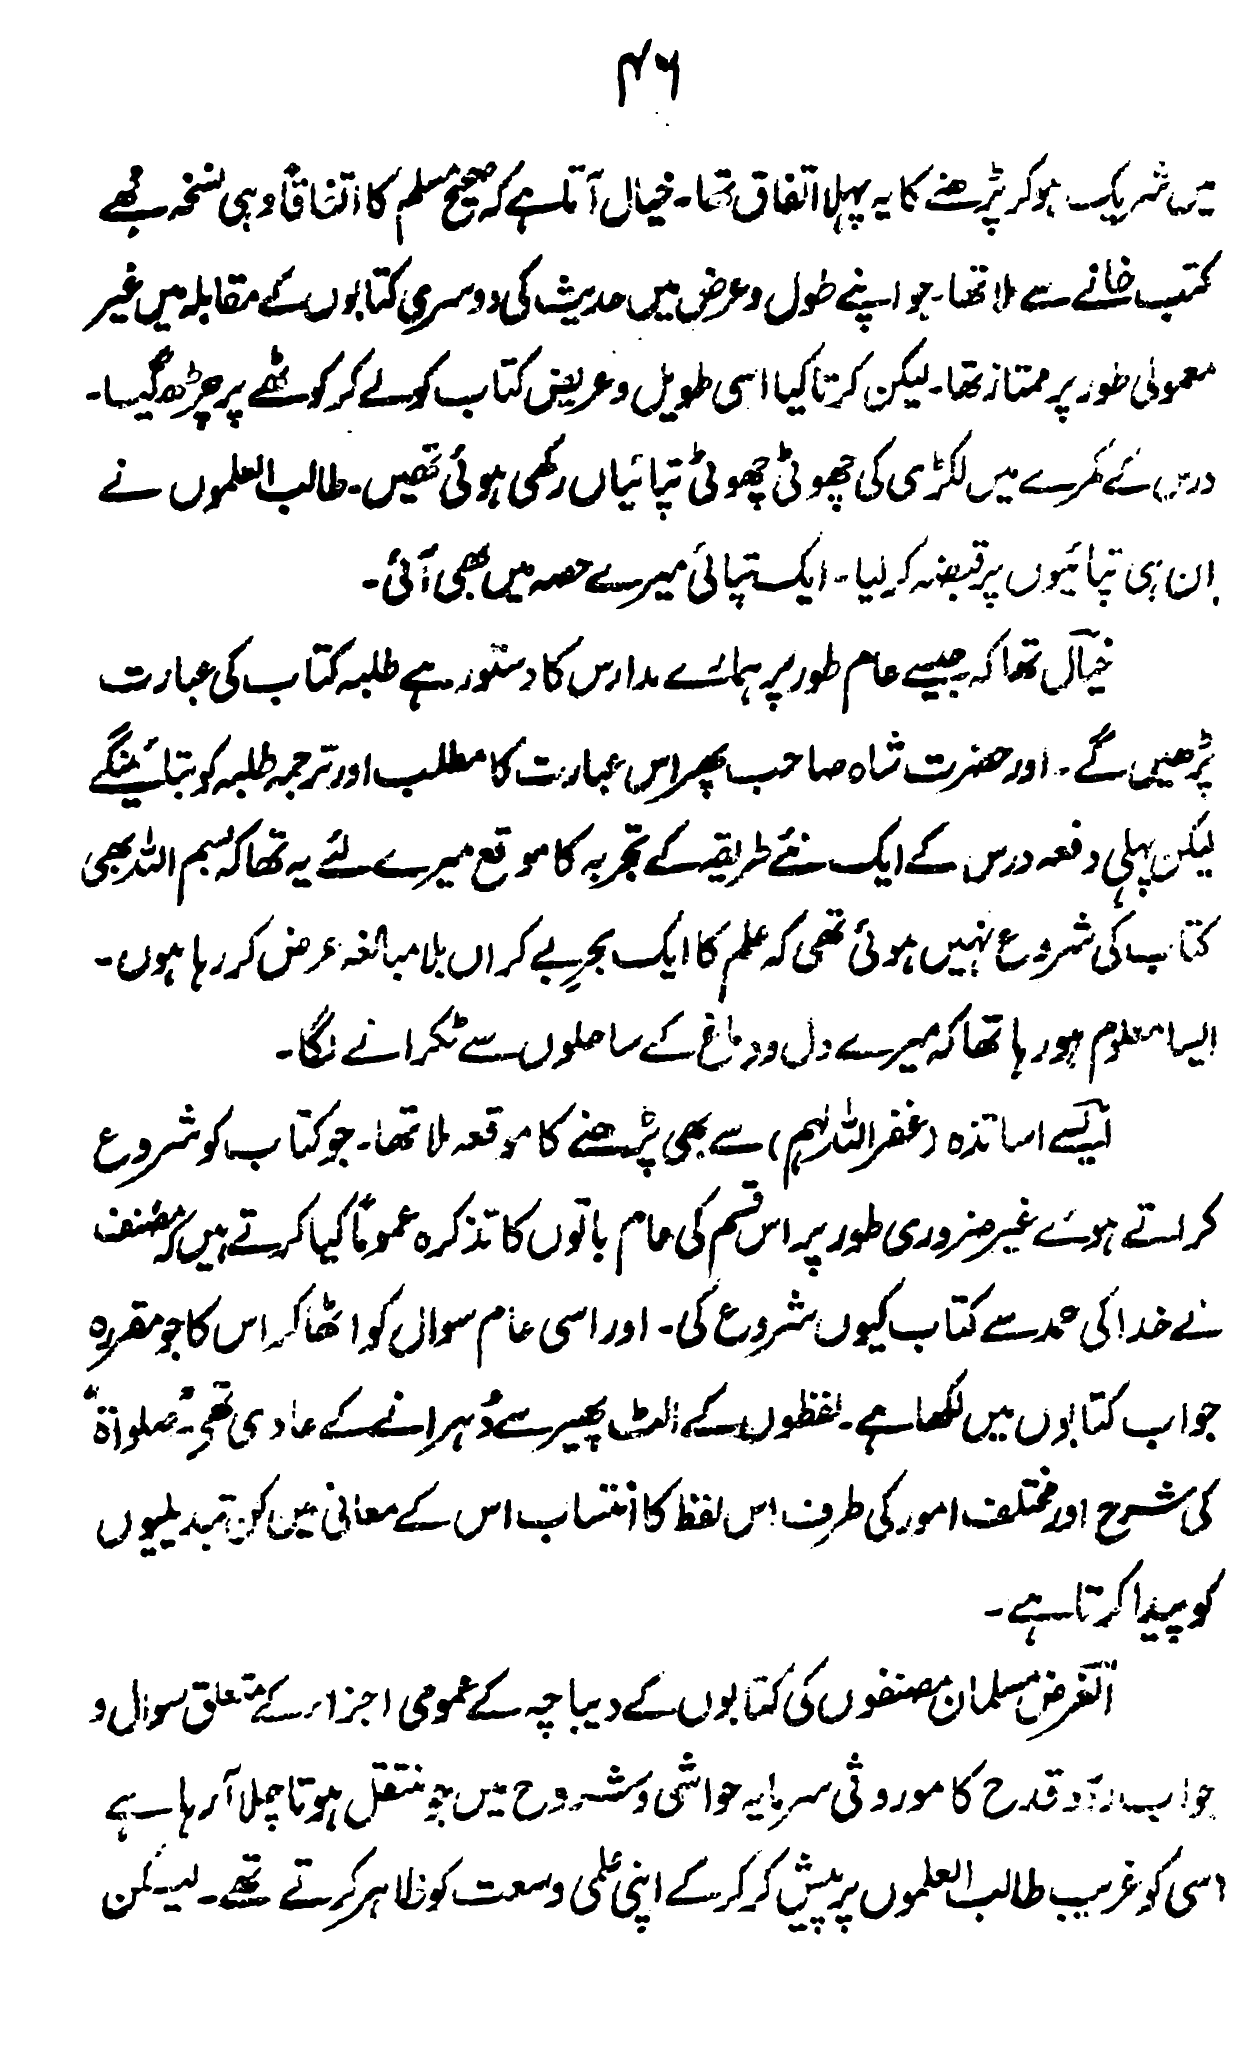 ۴۶
میں شریک ہو کر پڑھنے کا یہ پہلا اتفاق تھا۔ خیال آتا ہے کہ صحیح مسلم کا اتفاقاً وہی نسخہ مجھے
کتب خانے سے ملا تھا۔ جو اپنے طول و عرض میں حدیث کی دوسری کتابوں کے مقابلہ میں غیر
معمولی طور پر ممتاز تھا۔ لیکن کرتا کیا اسی طویل و عریض کتاب کو لے کر کوٹھے پر چڑھ گیا۔
درس کے کمرے میں لکڑی کی چھوٹی چھوٹی تپائیاں رکھی ہوئی تھیں۔ طالب العلموں نے
ان ہی تپائیوں پر قبضہ کر لیا۔ ایک تپائی میرے حصہ میں بھی آئی۔
خیال تھا کہ جیسے عام طور پر ہمارے مدارس کا دستور ہے طلبہ کتاب کی عبارت
پڑھیں گے۔ اور حضرت شاہ صاحب پھر اس عبارت کا مطلب اور ترجمہ طلبہ کو بتائینگے
لیکن پہلی دفعہ درس کے ایک نئے طریقہ کے تجربہ کا موقع میرے لئے یہ تھا کہ بسم اللہ بھی
کتاب کی شروع نہیں ہوئی تھی کہ علم کا ایک بحرِ بے کراں بلا مبالغہ عرض کر رہا ہوں۔
ایسا معلوم ہو رہا تھا کہ میرے دل و دماغ کے ساحلوں سے ٹکرانے لگا۔
ایسے اساتذہ (غفر اللہ لہم) سے بھی پڑھنے کا موقعہ ملا تھا۔ جو کتاب کو شروع
کراتے ہوئے غیر ضروری طور پر اس قسم کی عام باتوں کا تذکرہ عموماً کیا کرتے ہیں کہ مصنف
نے خدا کی حمد سے کتاب کیوں شروع کی۔ اور اسی عام سوال کو اٹھا کر اس کا جو مقررہ
جواب کتابوں میں لکھا ہے۔ لفظوں کے الٹ پھیر سے دُہرانے کے عادی تھے۔ "صلوٰۃ"
کی شرح اور مختلف امور کی طرف اس لفظ کا انتساب اس کے معانی میں کن تبدیلیوں
کو پیدا کرتا ہے۔
الغرض مسلمان مصنفوں کی کتابوں کے دیباچہ کے عمومی اجزاء کے متعلق سوال و
جواب ردّ و قدح کا موروثی سرمایہ حواشی و شروح میں جو منتقل ہوتا چلا آ رہا ہے
اسی کو غریب طالب العلموں پر پیش کر کر کے اپنی علمی وسعت کو ظاہر کرتے تھے۔ لیکن